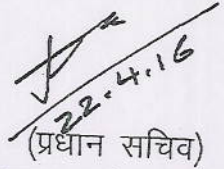 22.4.16
(प्रधान सचिव)